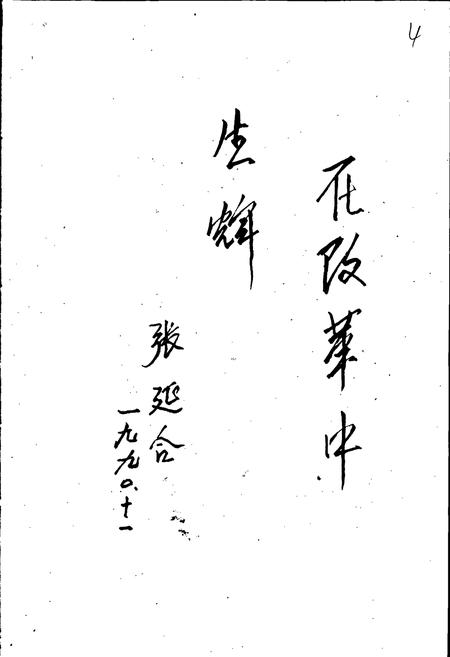 4
在改革中
生辉
张延合
一九九〇.十一